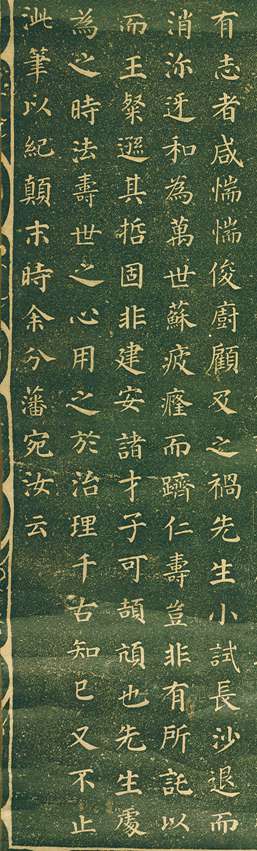 有志者咸惴惴俊廚顧又之禍先生小試長沙退而
消沴迓和為萬世蘇疲癃而躋仁壽豈非有所託以
而王粲遜其哲固非建安諸才子可頡頏也先生處
為之時法壽世之心用之於治理千古知已又不止
泚筆以紀顛末時余分藩宛汝云